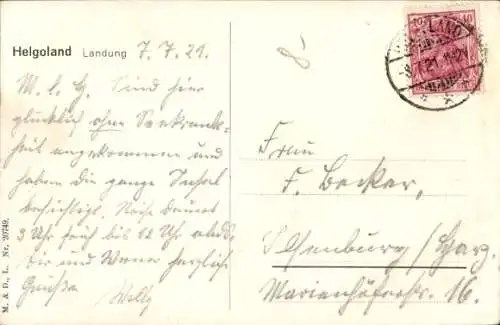 Helgoland Landung 7. 7. 21.
M. l. G. Sind hier
glücklich ohne Seekrank-
heit angekommen und
haben die ganze Insel
besichtigt. Reise dauert
3 Uhr früh bis 12 Uhr abds.
Dir und Werner herzliche
Grüsse Willy
M. & D., L. Nr. 20749.
40 40
HELGOLAND
Frau
F. Becker,
Ilsenburg/Harz.
Marienhöferstr. 16.